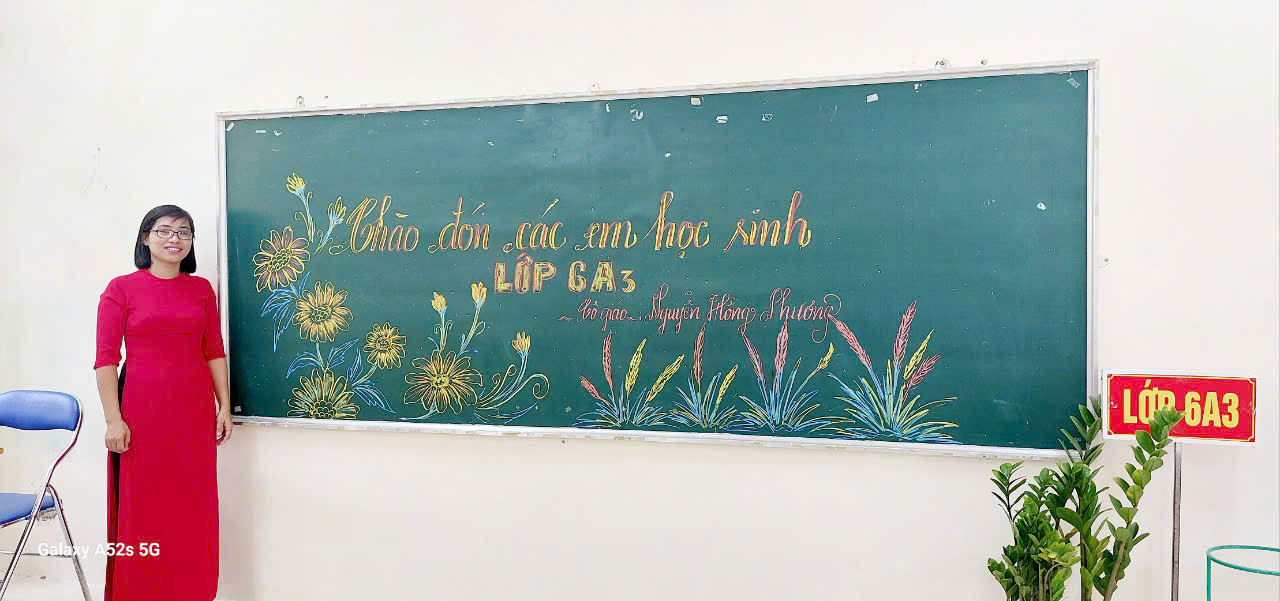 Chào đón các em học sinh
LỚP 6A3
~ Cô giáo ~ Nguyễn Hồng Phương
LỚP 6A3
Galaxy A52s 5G